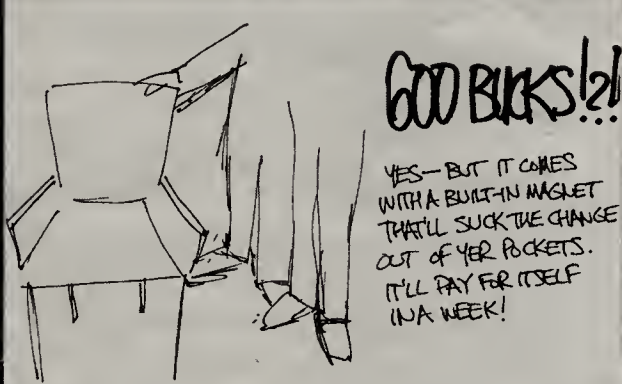 600 BUCKS!?!
YES— BUT IT COMES
WITH A BUILT-IN MAGNET
THAT'LL SUCK THE CHANGE
OUT OF YER POCKETS.
IT'LL PAY FOR ITSELF
IN A WEEK!